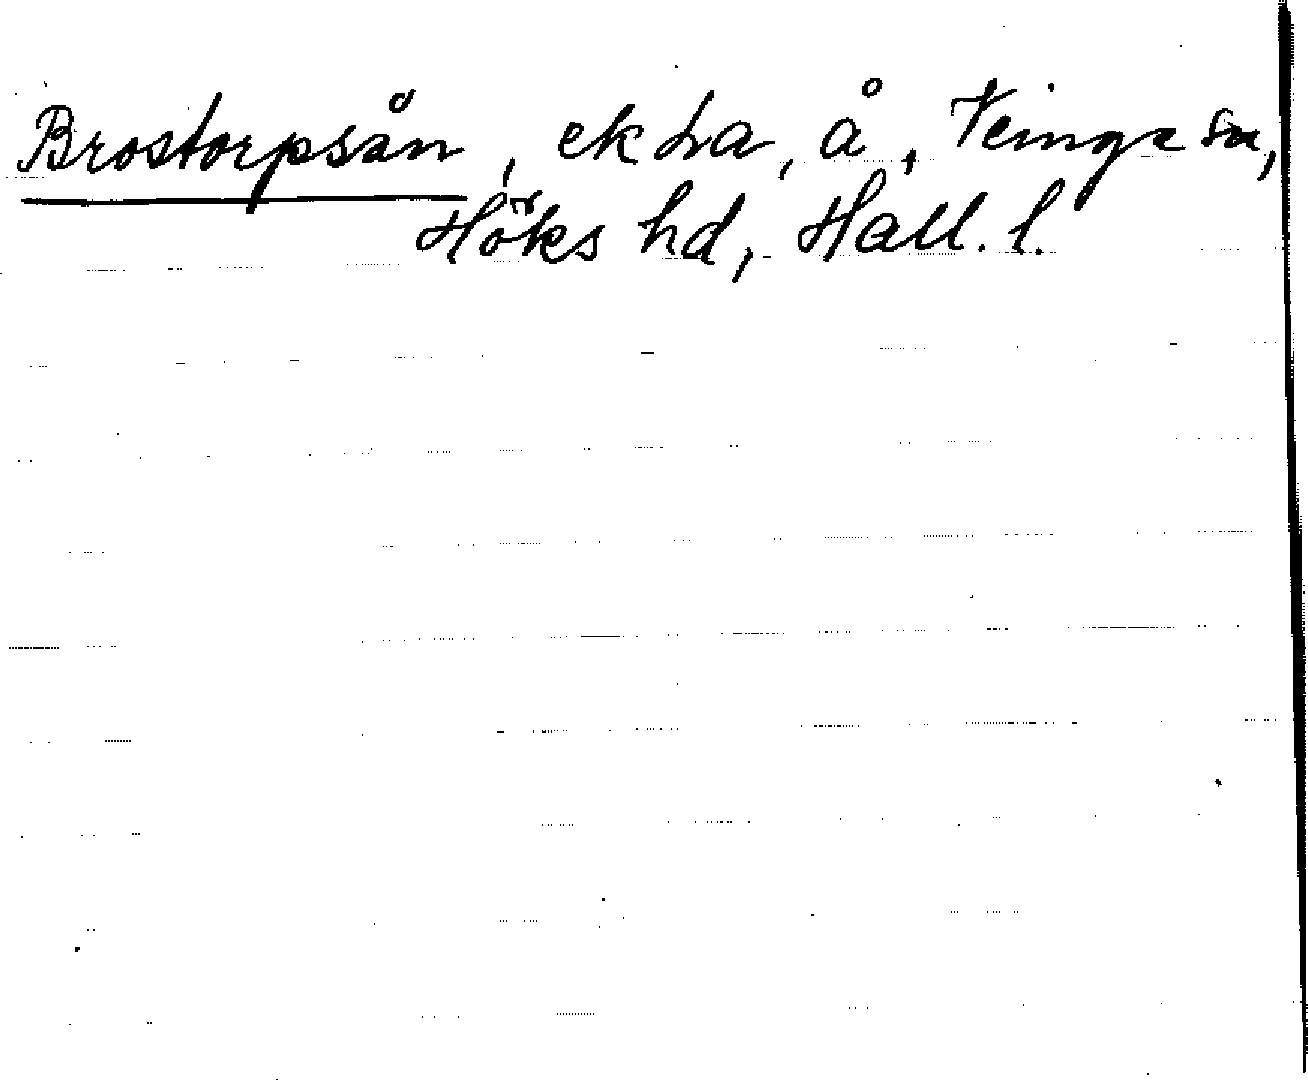 Brostorpsån, ek ha, å, Veinge sn,
Höks hd, Hall. l.